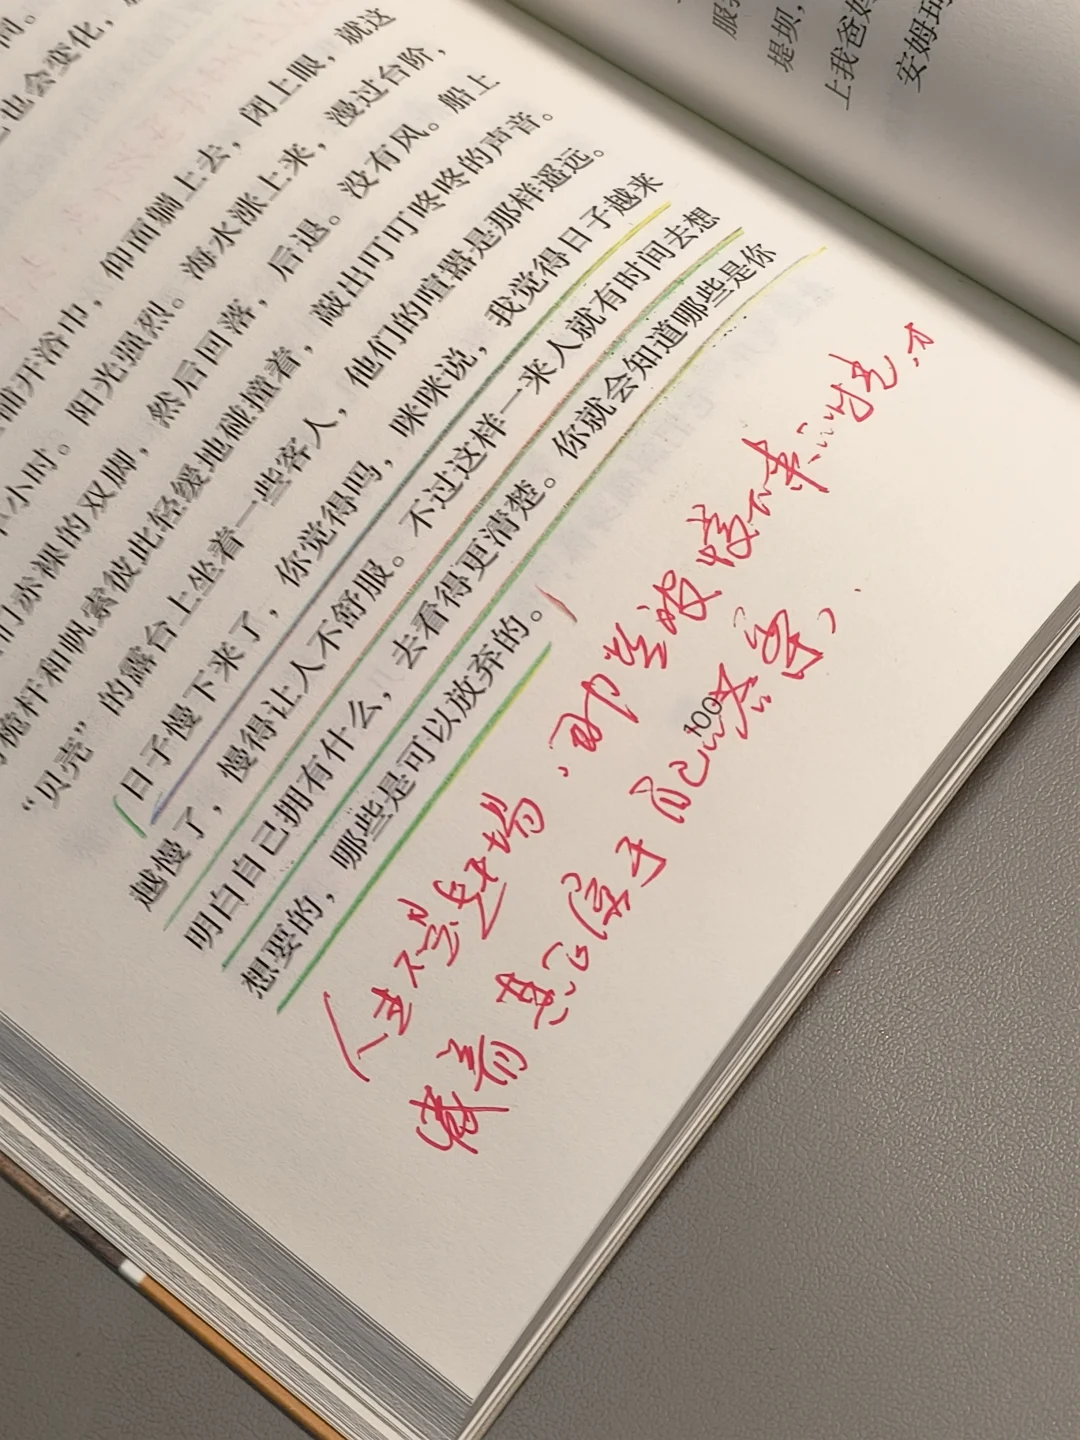 间。
也会变化，
开浴巾，仰面躺上去，闭上眼，就这
小时。阳光强烈。海水涨上来，漫过台阶，
们赤裸的双脚，然后回落，后退。没有风。船上
桅杆和帆索彼此轻缓地碰撞着，敲出叮叮咚咚的声音。
“贝壳”的露台上坐着一些客人，他们的喧嚣是那样遥远。
日子慢下来了，你觉得吗，咪咪说，我觉得日子越来
越慢了，慢得让人不舒服。不过这样一来人就有时间去想
明白自己拥有什么，去看得更清楚。你就会知道哪些是你
想要的，哪些是可以放弃的。
人生不是赶场，那些被慢下来的时光，才
藏着真正属于自己的答案，
100
服
堤坝，
上我爸妈
安姆